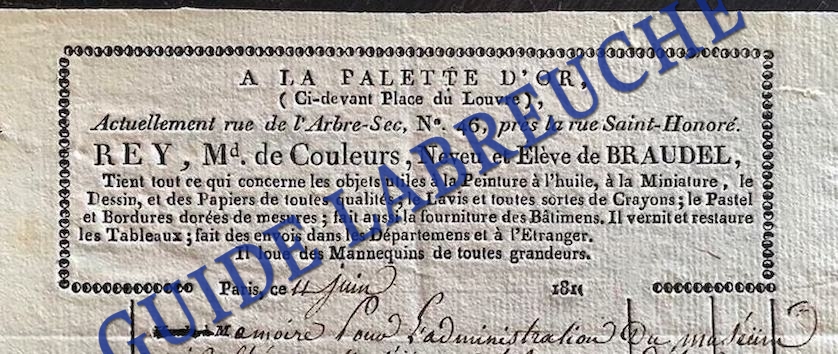 A LA PALETTE D'OR,
(Ci-devant Place du Louvre),
Actuellement rue de l'Arbre-Sec, N°. 46, près la rue Saint-Honoré.
REY, Md. de Couleurs, Neveu et Elève de BRAUDEL,
Tient tout ce qui concerne les objets utiles à la Peinture à l'huile, à la Miniature, le
Dessin, et des Papiers de toutes qualités; le Lavis et toutes sortes de Crayons; le Pastel
et Bordures dorées de mesures; fait aussi la fourniture des Bâtimens. Il vernit et restaure
les Tableaux; fait des envois dans les Départemens et à l'Etranger.
Il loue des Mannequins de toutes grandeurs.
Paris, ce 11 juin 1811
Memoire Pour L'administration Du museum
GUIDE LABREUCHE